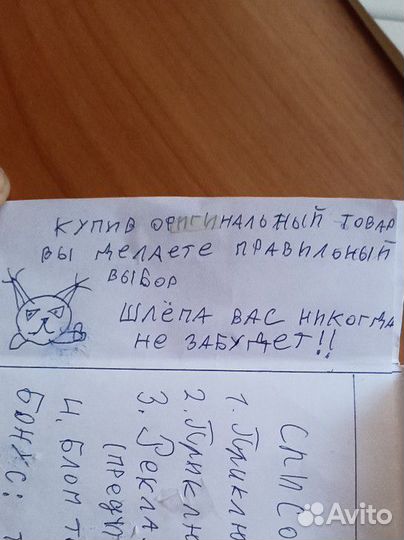 КУПИВ ОРИГИНАЛЬНЫЙ ТОВАР
ВЫ ДЕЛАЕТЕ ПРАВИЛЬНЫЙ
ВЫБОР
ШЛЁПА ВАС НИКОГДА
НЕ ЗАБУДЕТ!!
СПИСО
1. Приклю
2. Приклю
3. Рекла
(преду
4. Блом т
Бонус:
Avito